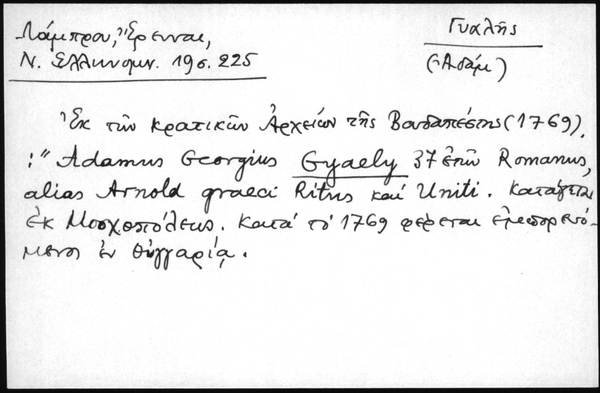 Λάμπρου, Ἔρευναι,
Ν. Ἑλληνομν. 19 σ. 225
Γυαλῆς
(Ἀδάμ)
Ἐκ τῶν κρατικῶν Ἀρχείων τῆς Βουδαπέστης (1769).
:" Adamus Georgius Gyaely 37 ἐτῶν Romanus,
alias Arnold graeci Ritus καί Uniti. Κατάγεται
ἐκ Μοσχοπόλεως. Κατά τό 1769 φέρεται ἐμπορευό-
μενος ἐν Οὑγγαρίᾳ.